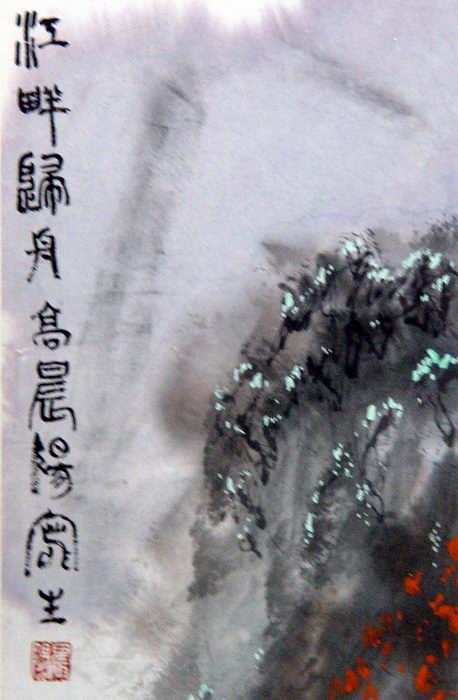 江畔歸舟高晨錫寫生